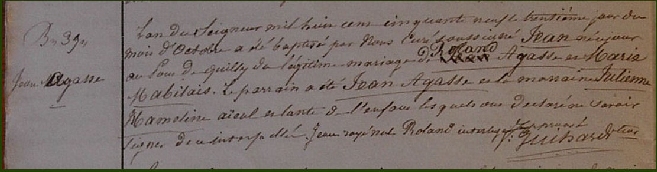 B. 39.
Jean Agasse
L'an du Seigneur mil huit cent cinquante neuf le trentième jour du
mois d'Octobre a été baptisé par Nous Curé soussigné Jean né ce jour
au Pont de Quilly du légitime mariage de Roland Agasse et Maria
Mabilais. Le parrain a été Jean Agasse et la marraine Julienne
Hamoline aieul et tante de l'enfant lesquels ont declaré ne savoir
signer de ce interpellé. Jean rayé nul Roland interligne approuvé
J. Guihard